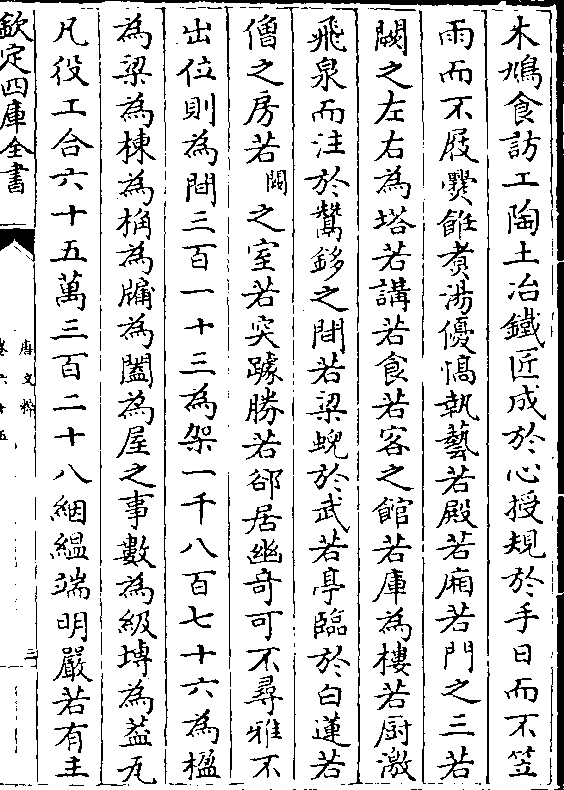 木鳩食訪工陶土冶鐵匠成於心授規於手日而不笠
雨而不屐㸑餁煑湯優愒執藝若殿若廂若門之三若
闕之左右為塔若講若食若客之館若庫為樓若厨激
飛泉而注於鬵鉹之間若梁蜺於武若亭臨於白蓮若
僧之房若闕之室若突躋勝若郤居幽竒可不尋雅不
出位則為間三百一十三為架一千八百七十六為楹
為梁為棟為桷為牖為闔為屋之事數為級塼為葢瓦
凡役工合六十五萬三百二十八絪緼端明嚴若有主
欽定四庫全書
唐文粹
卷六十五
三